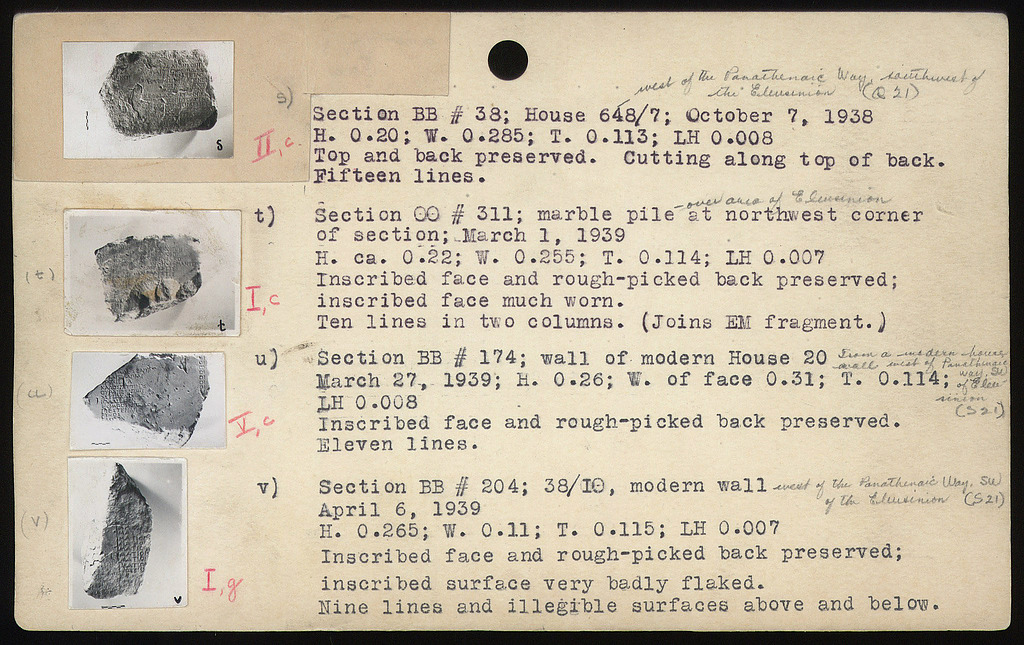 west of the Panathenaic Way, southwest of
the Eleusinion (Q 21)
s)
Section BB # 38; House 648/7; October 7, 1938
H. 0.20; W. 0.285; T. 0.113; LH 0.008
Top and back preserved. Cutting along top of back.
Fifteen lines.
s
II, c.
-over area of Eleusinion
t)
Section OO # 311; marble pile at northwest corner
of section; March 1, 1939
H. ca. 0.22; W. 0.255; T. 0.114; LH 0.007
Inscribed face and rough-picked back preserved;
inscribed face much worn.
Ten lines in two columns. (Joins EM fragment.)
(t)
t
I, c
u)
Section BB # 174; wall of modern House 20
From a modern house
wall west of Panathenaic
Way, SW
of Eleu-
sinion
(S 21)
March 27, 1939; H. 0.26; W. of face 0.31; T. 0.114;
LH 0.008
Inscribed face and rough-picked back preserved.
Eleven lines.
(u)
V, c
v)
Section BB # 204; 38/10, modern wall
west of the Panathenaic Way, SW
of the Eleusinion (S21)
April 6, 1939
H. 0.265; W. 0.11; T. 0.115; LH 0.007
Inscribed face and rough-picked back preserved;
inscribed surface very badly flaked.
Nine lines and illegible surfaces above and below.
(v)
v
I, g